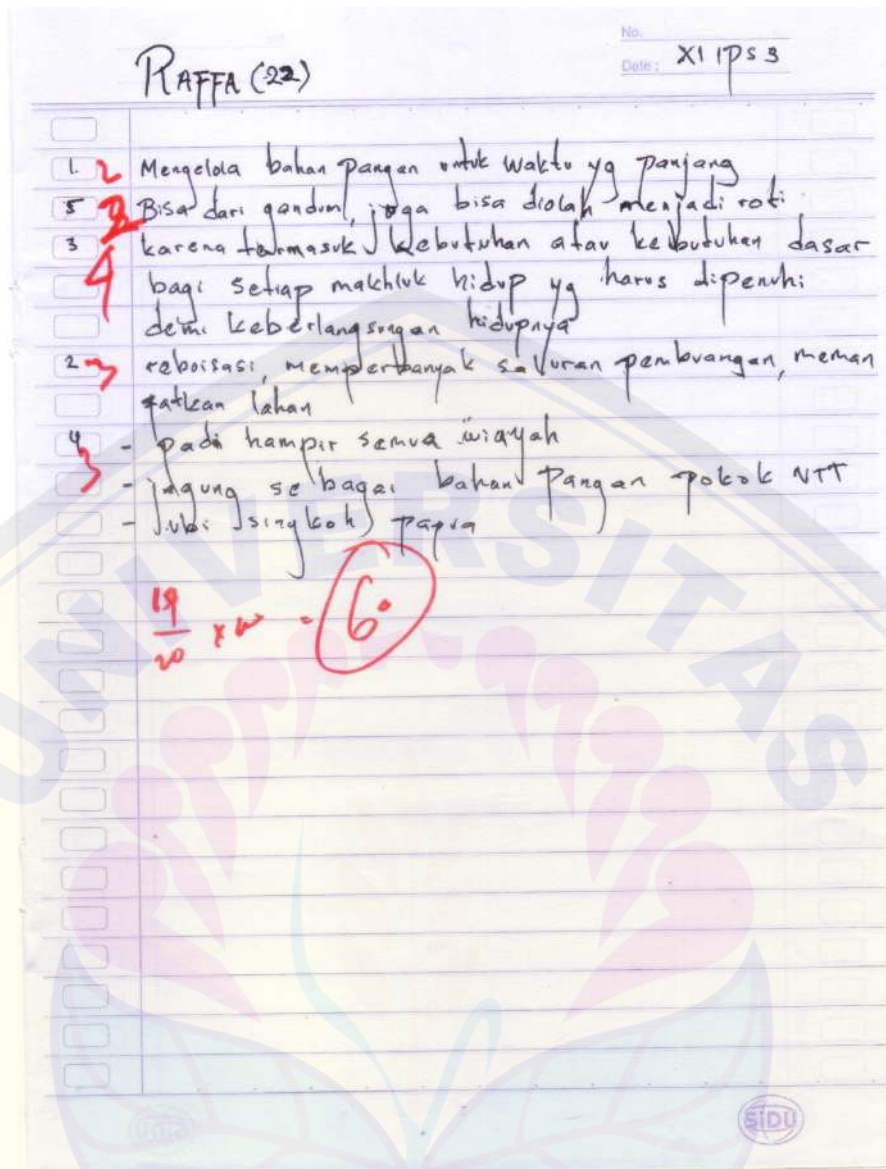 No:
RAFFA (22)
Date: XI IPS 3
1. 2 Mengelola bahan pangan untuk waktu yg panjang
5 2 Bisa dari gandum, juga bisa diolah menjadi roti.
3 karena termasuk kebutuhan atau kebutuhan dasar
4 bagi setiap makhluk hidup yg harus dipenuhi
demi keberlangsungan hidupnya
2 3 reboisasi, memperbanyak saluran pembuangan, meman
fatkan lahan
4 - padi hampir semua wiayah
3 - jagung sebagai bahan pangan pokok NTT
- 
papua
20
UNIVERSITAS
SiDU